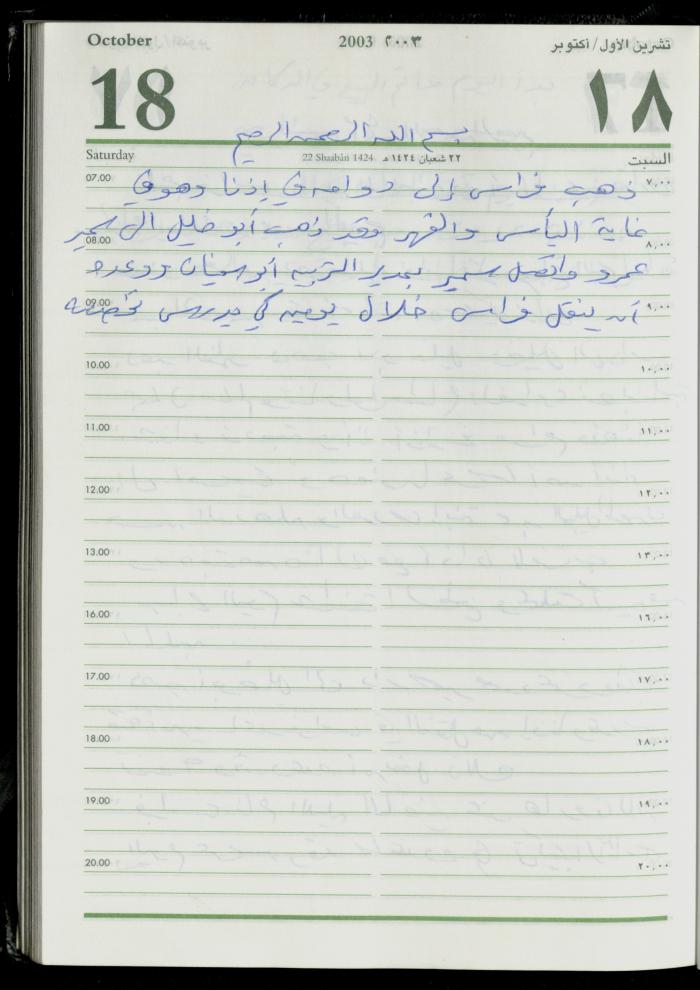 October 2003 ٢٠٠٣ تشرين الأول/أكتوبر
18 ١٨
بسم الله الرحمن الرحيم
Saturday 22 Shaabān 1424 ٢٢ شعبان ١٤٢٤هـ السبت
07.00 ٧,٠٠
ذهب فراس إلى دوامه في إذنا وهو في
غاية اليأس والقهر وقد ذهب أبو خليل إلى سمير
08.00 ٨,٠٠
عمرو واتصل سمير بمدير التربية أبو سفيان ووعده
09.00 ٩,٠٠
أن ينقل فراس خلال يومين كي يدرس تخصصه
10.00 ١٠,٠٠
11.00 ١١,٠٠
12.00 ١٢,٠٠
13.00 ١٣,٠٠
16.00 ١٦,٠٠
17.00 ١٧,٠٠
18.00 ١٨,٠٠
19.00 ١٩,٠٠
20.00 ٢٠,٠٠